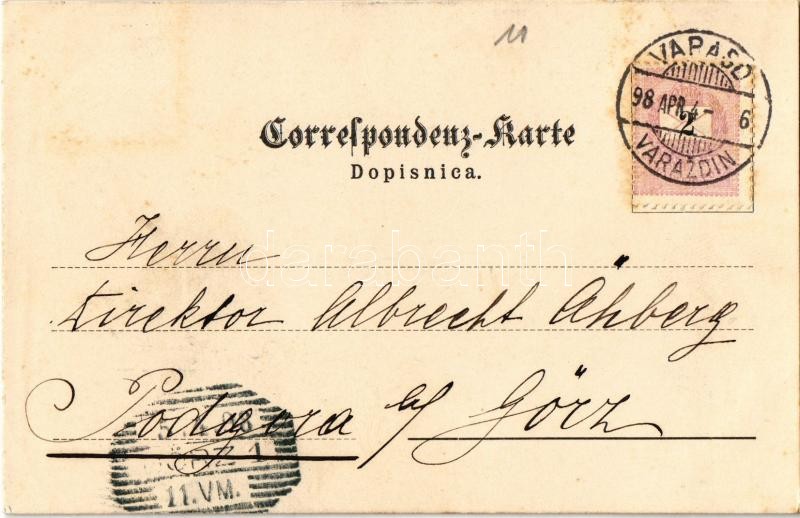 11
VARASD
98 APR. 4 - 6
2
VARAŽDIN
Correspondenz-Karte
Dopisnica.
darabanth
Herrn
Direktor Albrecht Ähberg
Podgora b/ Görz
GÖRZ 1
11.VM.